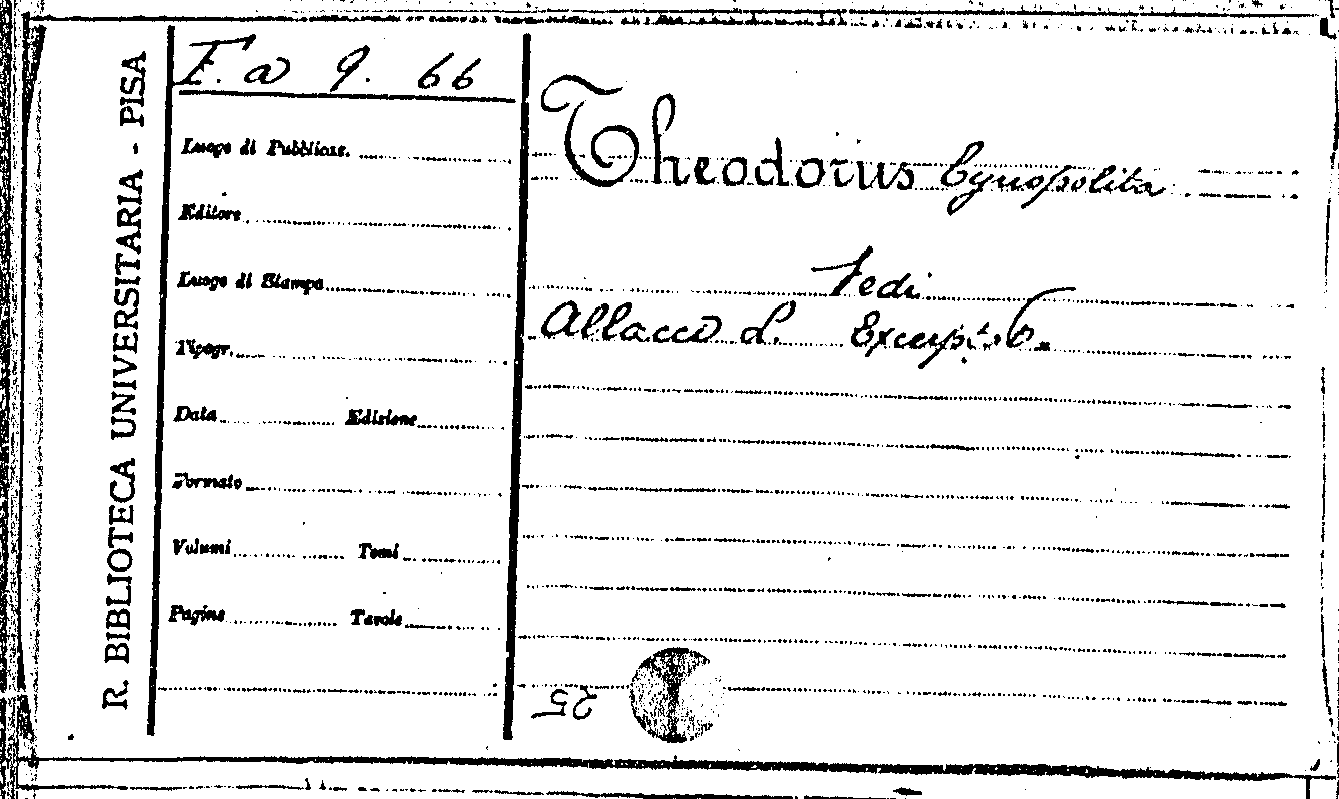 R. BIBLIOTECA UNIVERSITARIA - PISA
F. a 9. 66
Luogo di Pubblicaz.
Editore
Luogo di Stampa
Tipogr.
Data Edizione
Formato
Volumi Tomi
Pagine Tavole
Theodorus Cynopolita
Vedi
Allacco L.
25